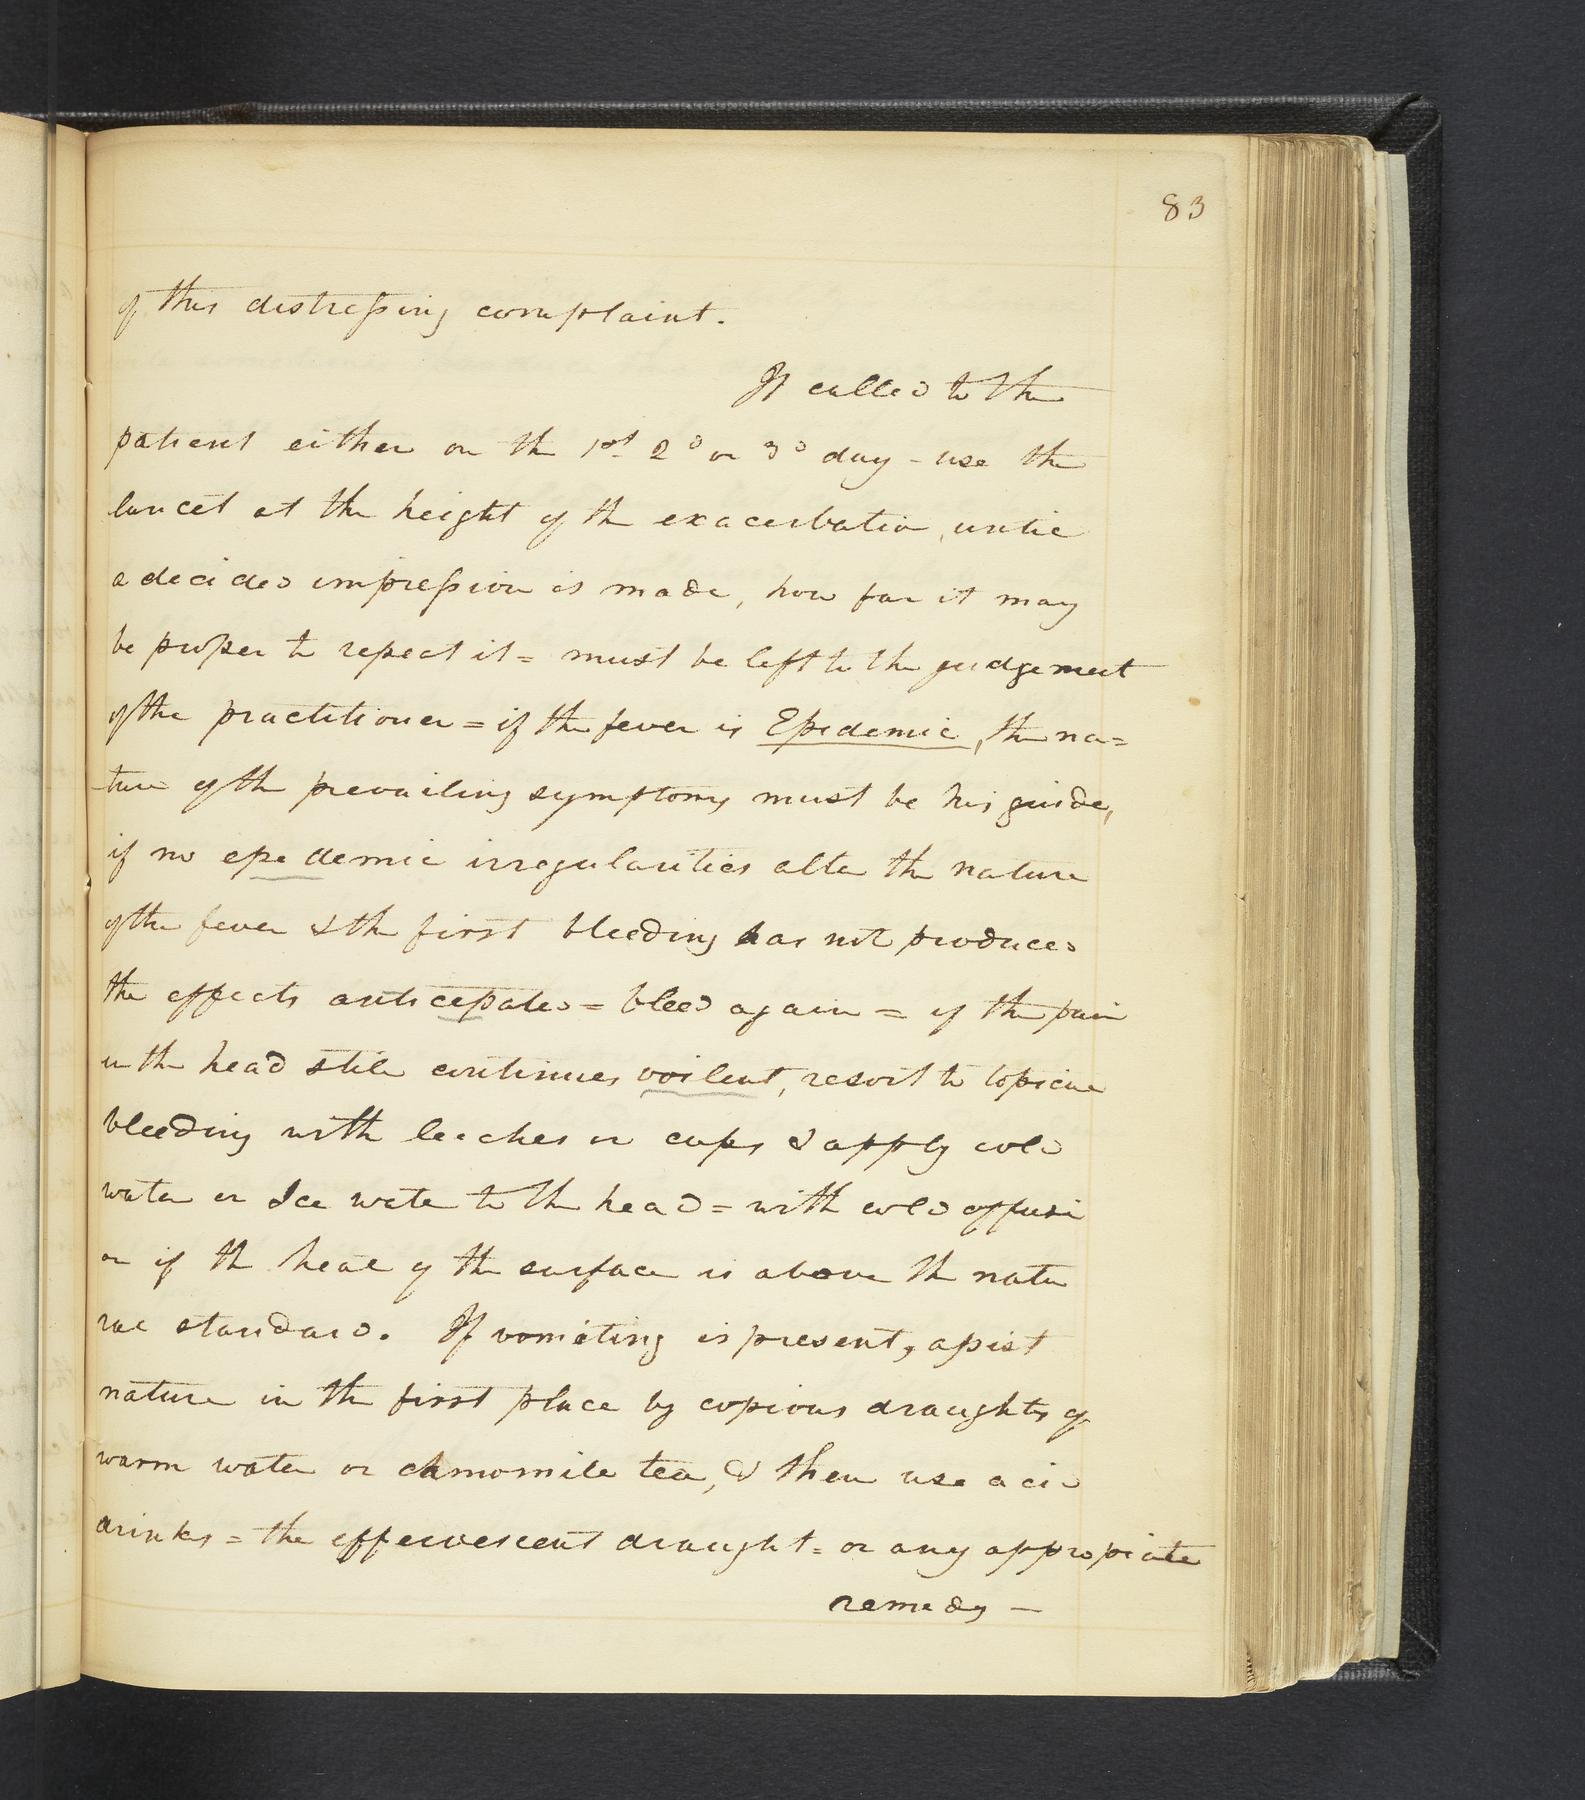 83
of this distressing complaint.
If called to the
patient either on the 1st 2d or 3d day - use the
lancet at the height of the exacerbation, until
a decided impression is made, how far it may
be proper to repeat it = must be left to the judgement
of the practitioner = if the fever is Epidemic, the na=
ture of the prevailing symptoms must be his guide,
if no epedemic irregularities alter the nature
of the fever & the first bleeding has not produced
the effects anticepated = bleed again = if the pain
in the head still continues voilent, resort to topical
bleeding with leeches or cups & apply cold
water or Ice water to the head = with cold affusi
on if the heat of the surface is above the natu
ral standard. If vomiting is present, assist
nature in the first place by copious draughts of
warm water or chmomile tea, & then use acid
drinks = the effervescent draught = or any appropiate
remedy —